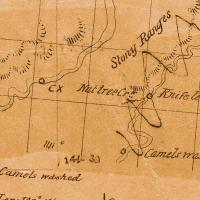 Stony Ranges
CX
Nuttree Cr.
Knife
144 · 33
Camels was
Camels washed